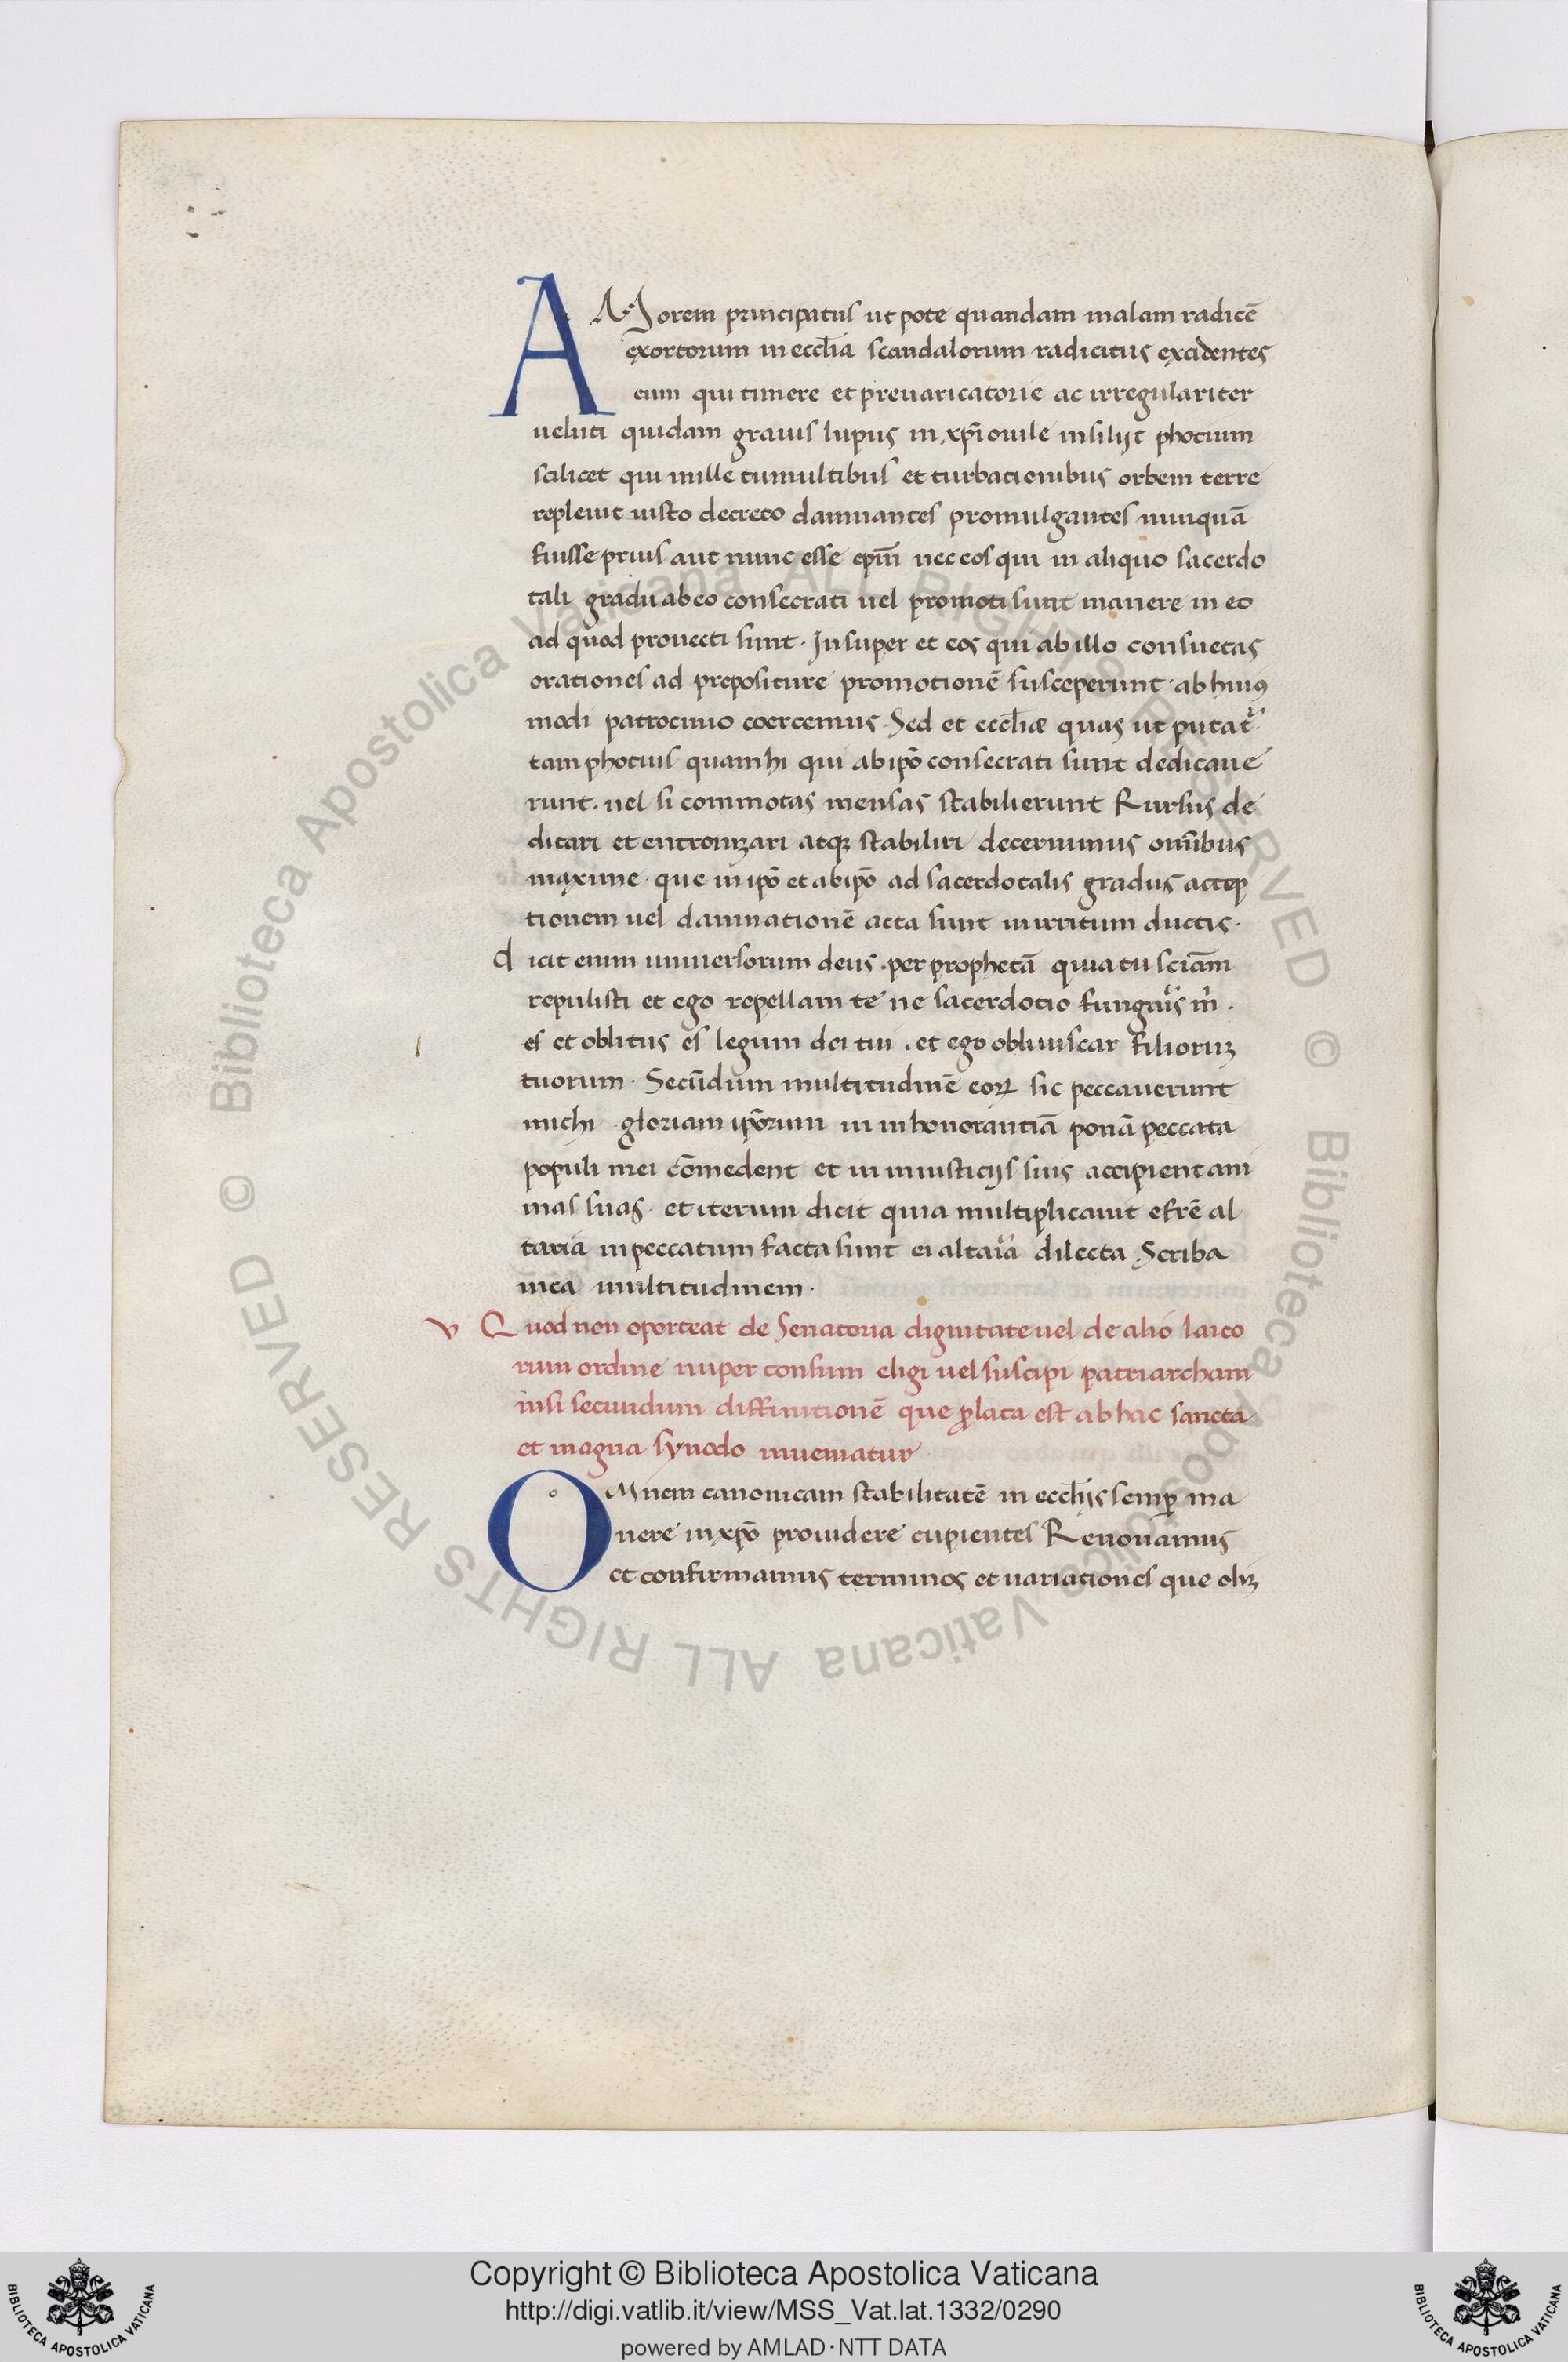 AMorem principatus ut pote quandam malam radicē
exortorum in ecclīa scandalorum radicitus excidentes
eum qui timere et prevaricatorie ac irregulariter
veluti quidam gravis lupus in xp̄i ovile insilijt photium
scilicet qui mille tumultibus et turbationibus orbem terre
replevit iusto decreto damnantes promulgantes nunquā
fuisse prius aut nunc esse ep̄m nec eos qui in aliquo sacerdo
tali gradu ab eo consecrati vel promoti sunt manere in eo
ad quod provecti sunt. Insuper et eos qui ab illo consuetas
orationes ad prepositure promotionē susceperunt. ab huiꝰ
modi patrocinio coercemus. Sed et ecclīæ quas ut putat᷑
tam photius quam hi qui ab ip̄o consecrati sunt dedicave
runt. vel si commotas mensas stabilierunt Rursus de
dicari et entronizari atqꝫ stabiliri decernimus om̄ibus
maxime. que in ip̄o et ab ip̄o ad sacerdotalis gradus accep
tionem vel damnationē acta sunt in irritum ductis.
dicit enim universorum deus. per prophetā quia tu sciām
repulisti et ego repellam te ne sacerdotio fungaris m̄.
es et oblitus es legum dei tui. et ego obliviscar filioruꝫ
tuorum. Secūdum multitudinē eoꝝ sic peccaverunt
michi. gloriam ip̄orum in inhonorantiā ponā peccata
populi mei cōmedent et in iniusticijs suis accipient ani
mas suas. et iterum dicit quia multiplicavit efrē al
taria in peccatum facta sunt ei altaria dilecta Scriba
mea multitudinem.
v Quod non oporteat de Senatoria dignitate vel de alio laico
rum ordine nuper tonsum eligi vel suscipi patriarcham
nisi secundum diffinitionē que ꝓlata est ab hac sancta
et magna synodo inveniatur
OMnem canonicam stabilitatē in ecclijs semꝑ ma
nere in xp̄o providere cupientes Renovamus
et confirmamus terminos et variationes que oliꝫ
© Biblioteca Apostolica Vaticana ALL RIGHTS RESERVED © Biblioteca Apostolica Vaticana ALL RIGHTS RESERVED
Copyright © Biblioteca Apostolica Vaticana
http://digi.vatlib.it/view/MSS_Vat.lat.1332/0290
powered by AMLAD·NTT DATA
BIBLIOTECA APOSTOLICA VATICANA
BIBLIOTECA APOSTOLICA VATICANA